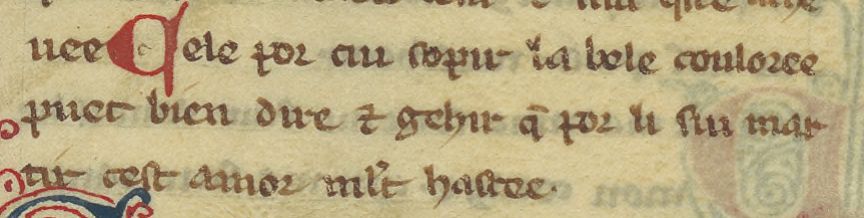 uee Cele por cui sopir la bele couloree
puet bien dire ⁊ gehir q̄ por li sui mar
tir cest amor ml't hastee.